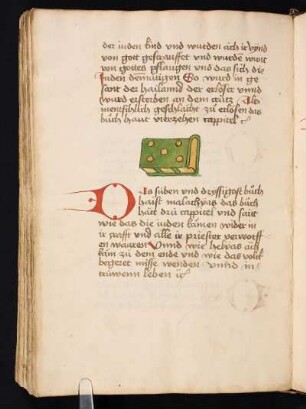 der iuden End vnd wurden sich ir vynd
von gott gestrauffet vnd wurde wort
von gottes pflangen vnd das sich die
Juden demüttigen So wurd in ge
sant der hailannd der erlöser vnnd
wurd ersterben an dem crütz Als
menschlich geschlächt zu erlösen das
büch haut vierzehen cappitel
Das süben vnd dryssigost büch
haist malachyas das büch
haut drü cappitel vnd sait
wie das die iuden kämen wider in
ir vnd alle ir priester verworff
en waren Vnnd wie helyas
käm zu dem ende vnd wie das volck
begeret wende vnnd in
trüwenn leben